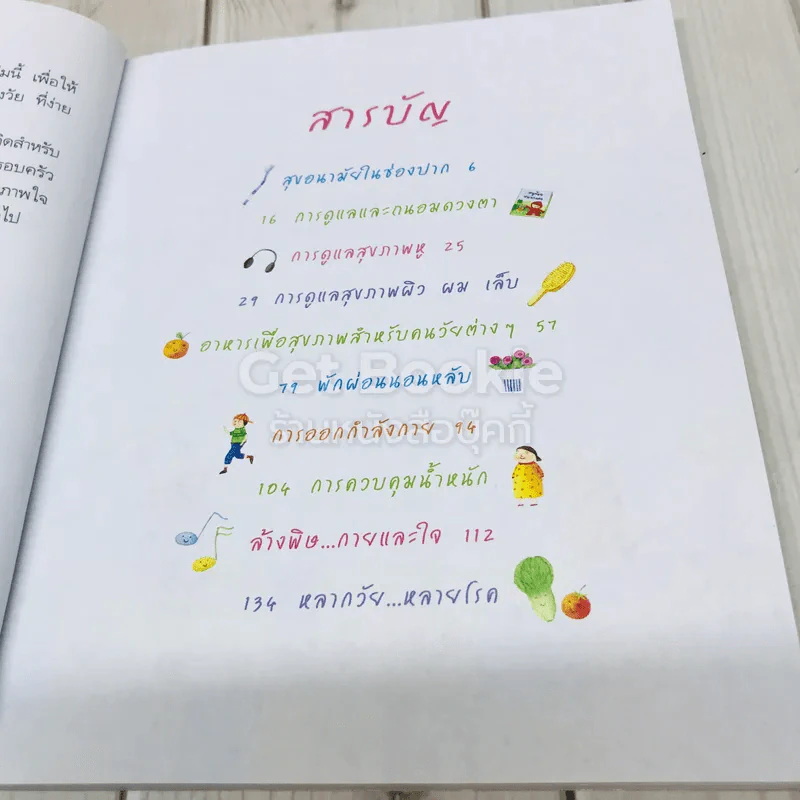 มนี้ เพื่อให้
วัย ที่ง่าย
ดสำหรับ
รอบครัว
ภาพใจ
ไป
สารบัญ
สุขอนามัยในช่องปาก 6
16 การดูแลและถนอมดวงตา
การดูแลสุขภาพหู 25
29 การดูแลสุขภาพผิว ผม เล็บ
อาหารเพื่อสุขภาพสำหรับคนวัยต่างๆ 57
79 พักผ่อนนอนหลับ
การออกกำลังกาย 94
104 การควบคุมน้ำหนัก
ล้างพิษ...กายและใจ 112
134 หลากวัย...หลายโรค
Get Bookie
ร้านหนังสือบุ๊คกี้